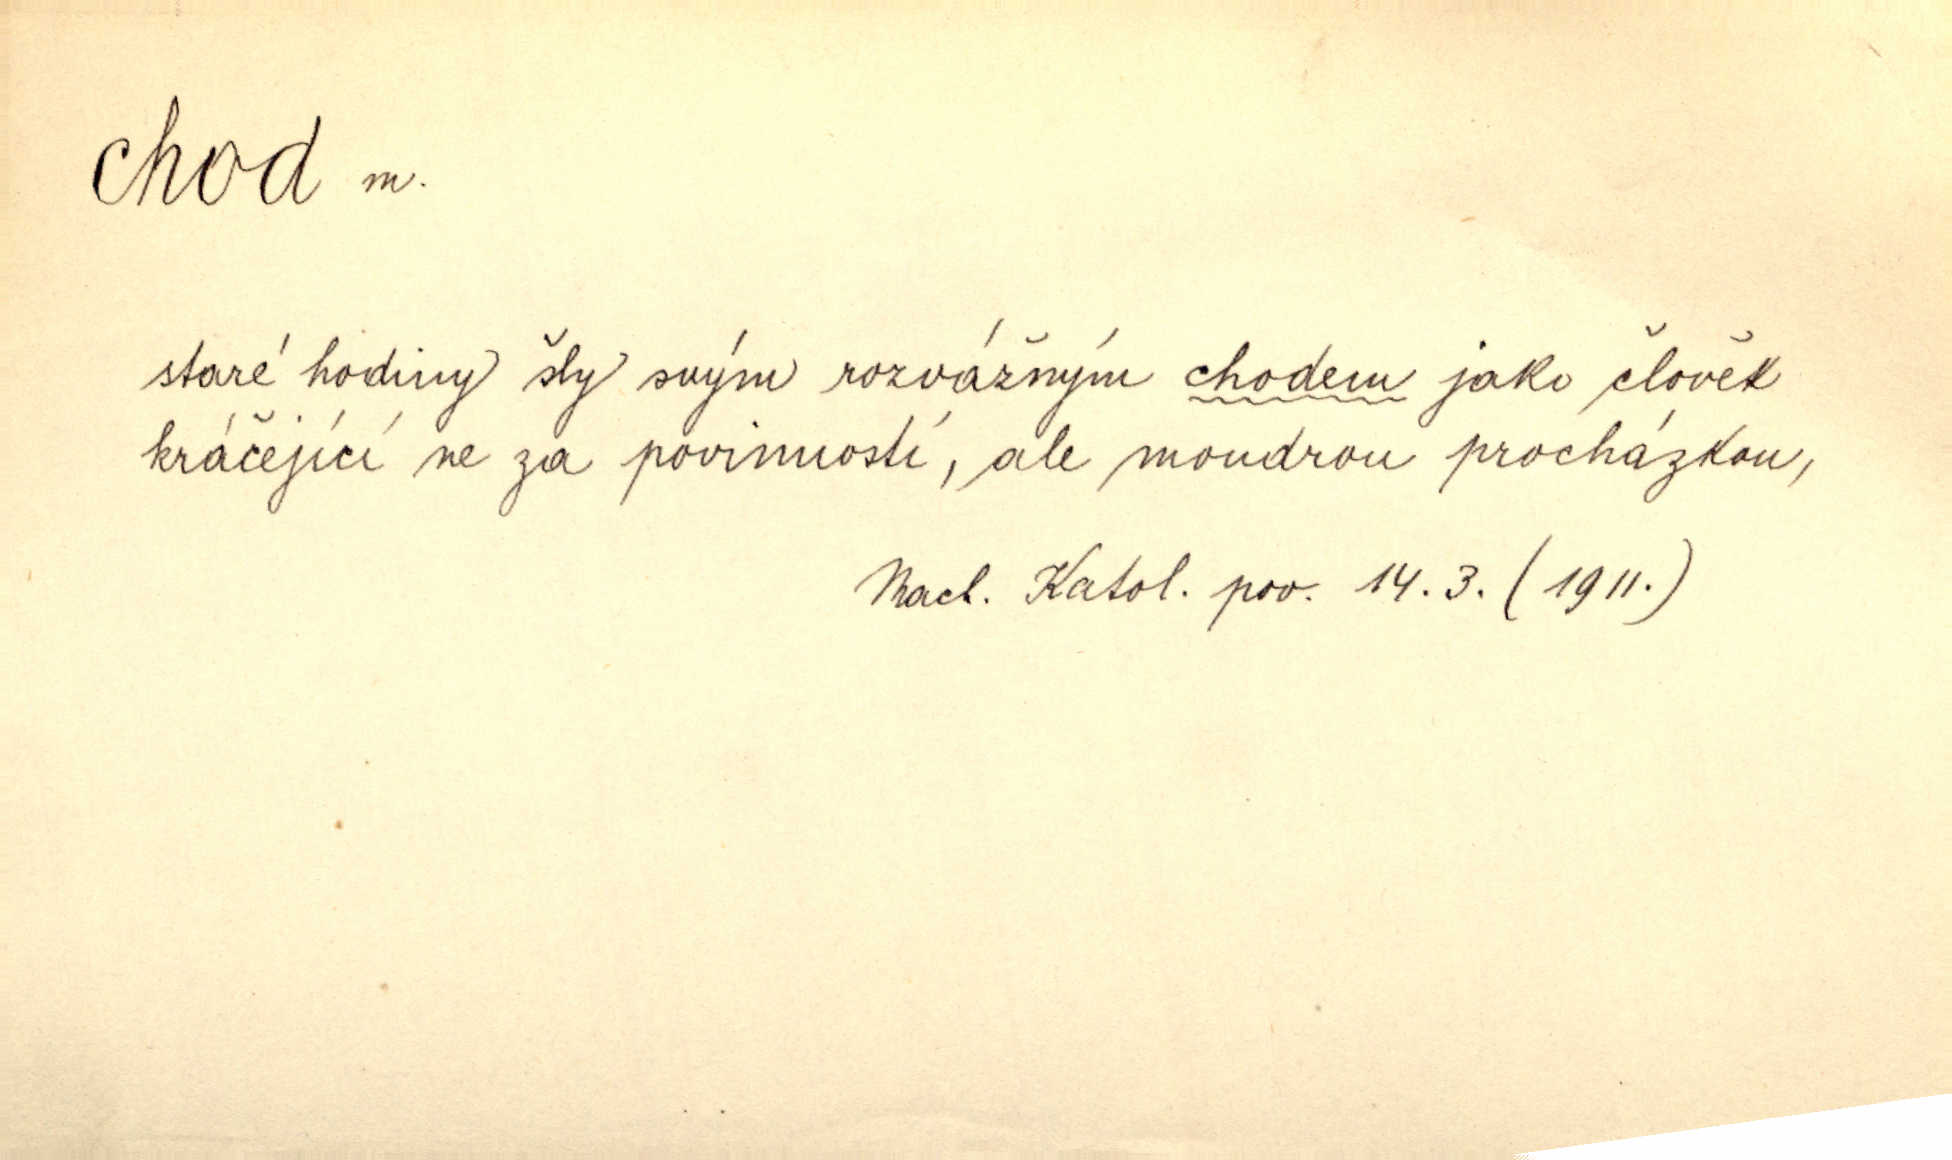 chod m.
staré hodiny šly svým rozvážným chodem jako člověk
kráčející ne za povinností, ale moudrou procházkou,
Mach. Katol. pov. 14. 3. (1911.)